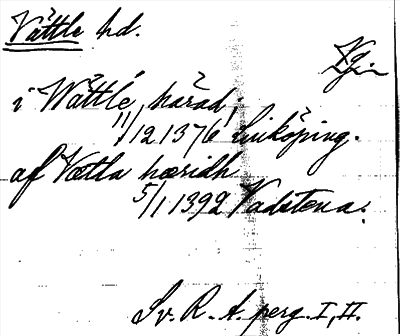 Vättle hd.
Vg.
i Wättle, härad;
11/12 1376 Linköping.
af Vætla hæridh
5/1 1392 Vadstena.
Sv. R. A. perg. I, II.